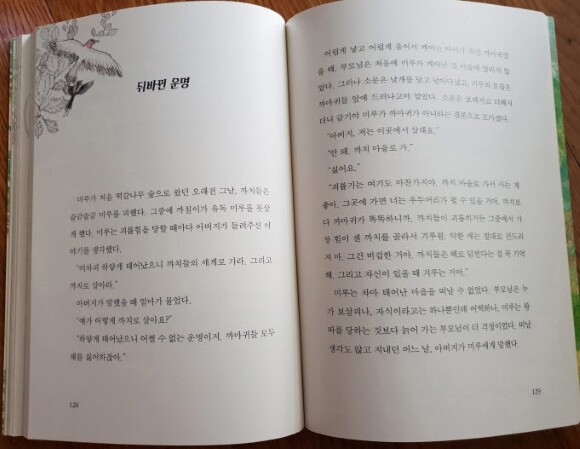 뒤바뀐 운명
미루가 처음 떡갈나무 숲으로 왔던 오래전 그날, 까치들은
슬금슬금 미루를 피했다. 그중에 까칠이가 유독 미루를 못살
게 했다. 미루는 괴롭힘을 당할 때마다 아버지가 들려주신 이
야기를 생각했다.
"어차피 하얗게 태어났으니 까치들의 세계로 가라. 그리고
까치로 살아라."
아버지가 말했을 때 엄마가 물었다.
"얘가 어떻게 까치로 살아요?"
"하얗게 태어났으니 어쩔 수 없는 운명이지. 까마귀들 모두
얘를 싫어하잖아."
128
어렵게 낳고 어렵게 품어서 깨어난 아이가 하얀 까마귀였
을 때, 부모님은 처음에 미루가 깨어난 걸 이웃에 알리지 않
았다. 그러나 소문은 날개를 달고 날아다녔고, 미루의 모습은
까마귀들 앞에 드러나고야 말았다. 소문은 보태지고 더해지
더니 급기야 미루가 까마귀가 아니라는 결론으로 모아졌다.
"아버지, 저는 이곳에서 살래요."
"안 돼. 까치 마을로 가."
"싫어요."
"괴롭기는 여기도 마찬가지야. 까치 마을로 가서 사는 게
좋아. 그곳에 가면 너는 우두머리가 될 수 있을 거야. 까치보
다 까마귀가 똑똑하니까. 까치들이 괴롭히거든 그중에서 가
장 힘이 센 까치를 골라서 겨루렴. 약한 애는 절대로 건드리
지 마. 그건 비겁한 거야. 까치들은 해로 덤빈다는 걸 꼭 기억
해. 그리고 자신이 있을 때 겨루는 거야."
미루는 차마 태어난 마을을 떠날 수 없었다. 부모님은 누
가 보살피나, 자식이라고는 하나뿐인데 어떡하나, 미루는 왕
따를 당하는 것보다 늙어 가는 부모님이 더 걱정이었다. 떠날
생각도 않고 지내던 어느 날, 아버지가 미루에게 말했다.
129